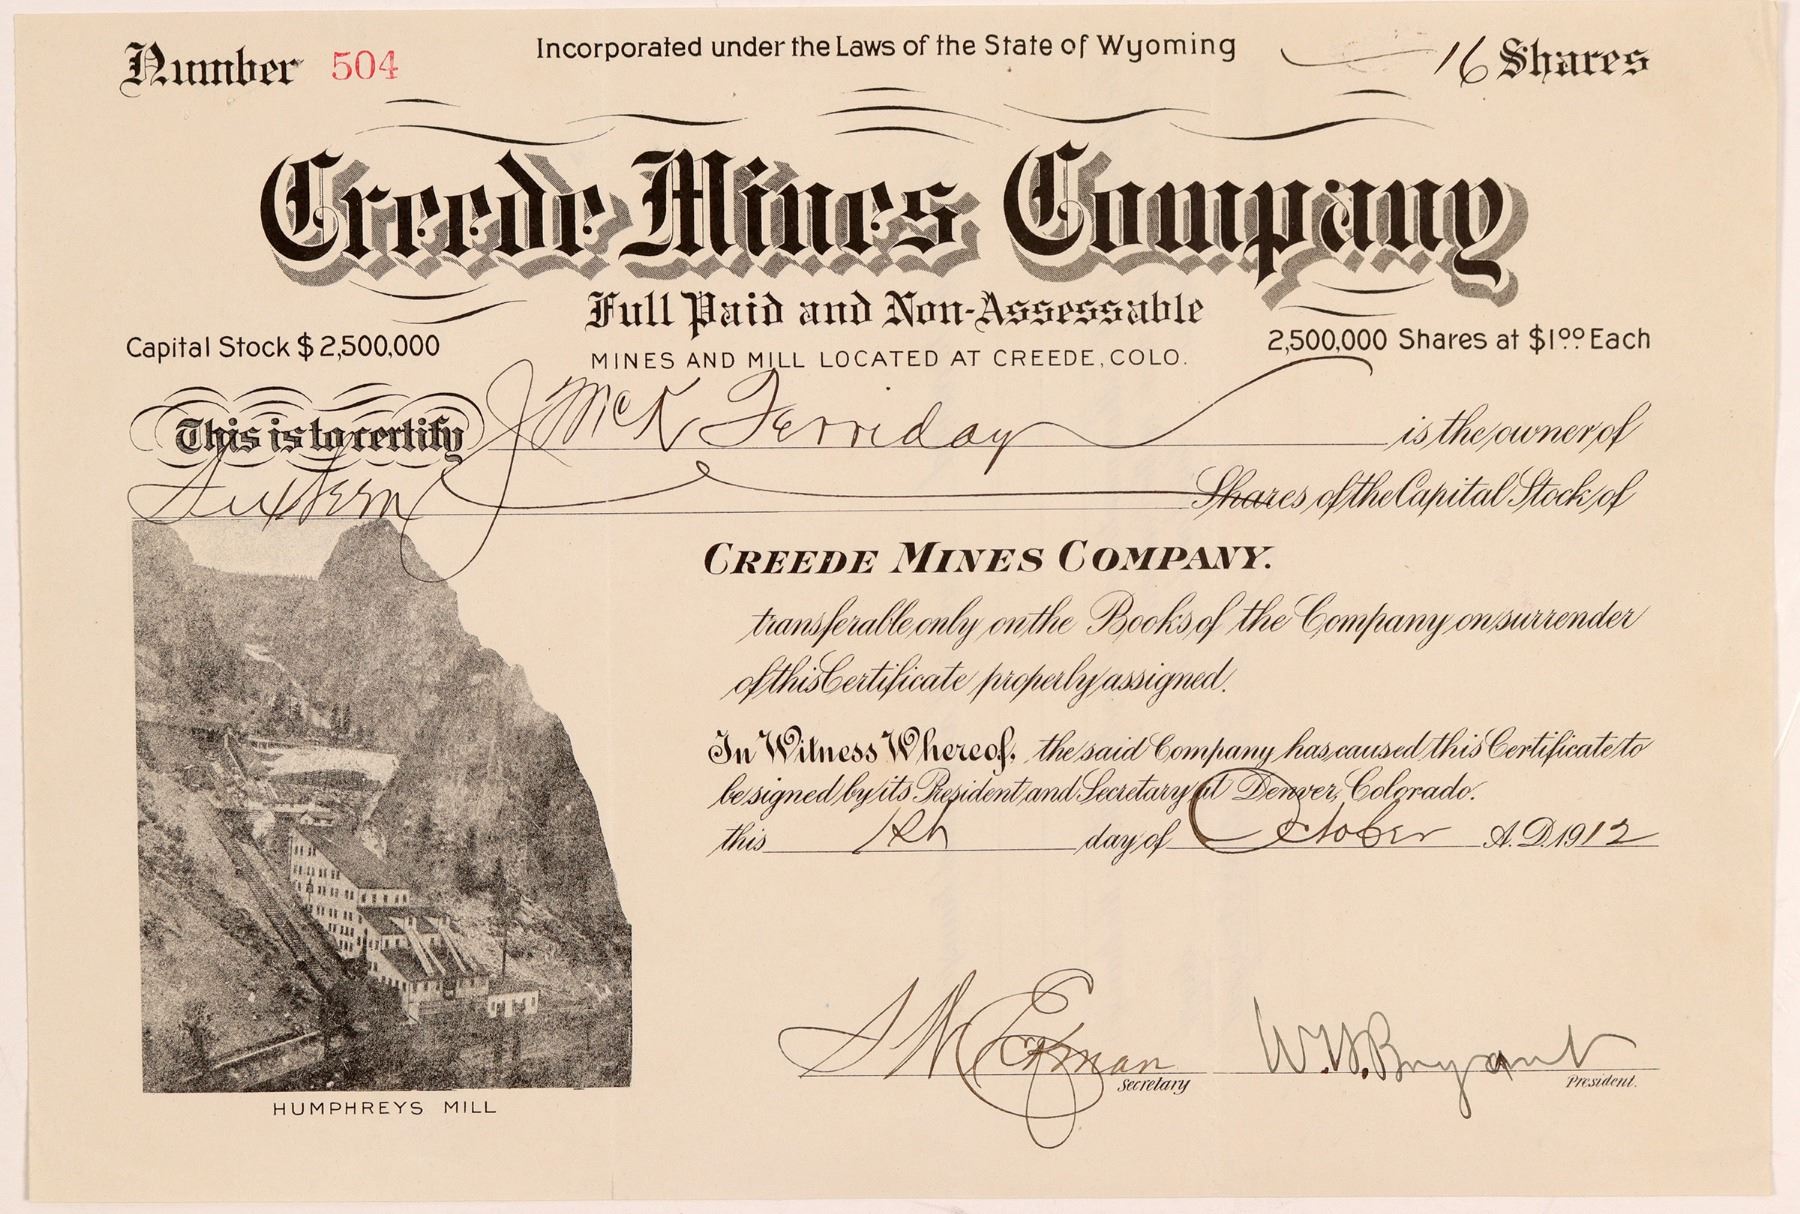 Number 504
Incorporated under the Laws of the State of Wyoming
16 Shares
Creede Mines Company
Full Paid and Non-Assessable
Capital Stock $2,500,000
MINES AND MILL LOCATED AT CREEDE, COLO.
2,500,000 Shares at $1.00 Each
This is to certify J McK Ferriday is the owner of
Sixteen Shares of the Capital Stock of
CREEDE MINES COMPANY.
transferable only on the Books of the Company on surrender
of this Certificate properly assigned.
In Witness Whereof, the said Company has caused this Certificate to
be signed by its President and Secretary at Denver, Colorado.
this day of October A.D. 1912
Eckman
Secretary
Bryant
President.
HUMPHREYS MILL